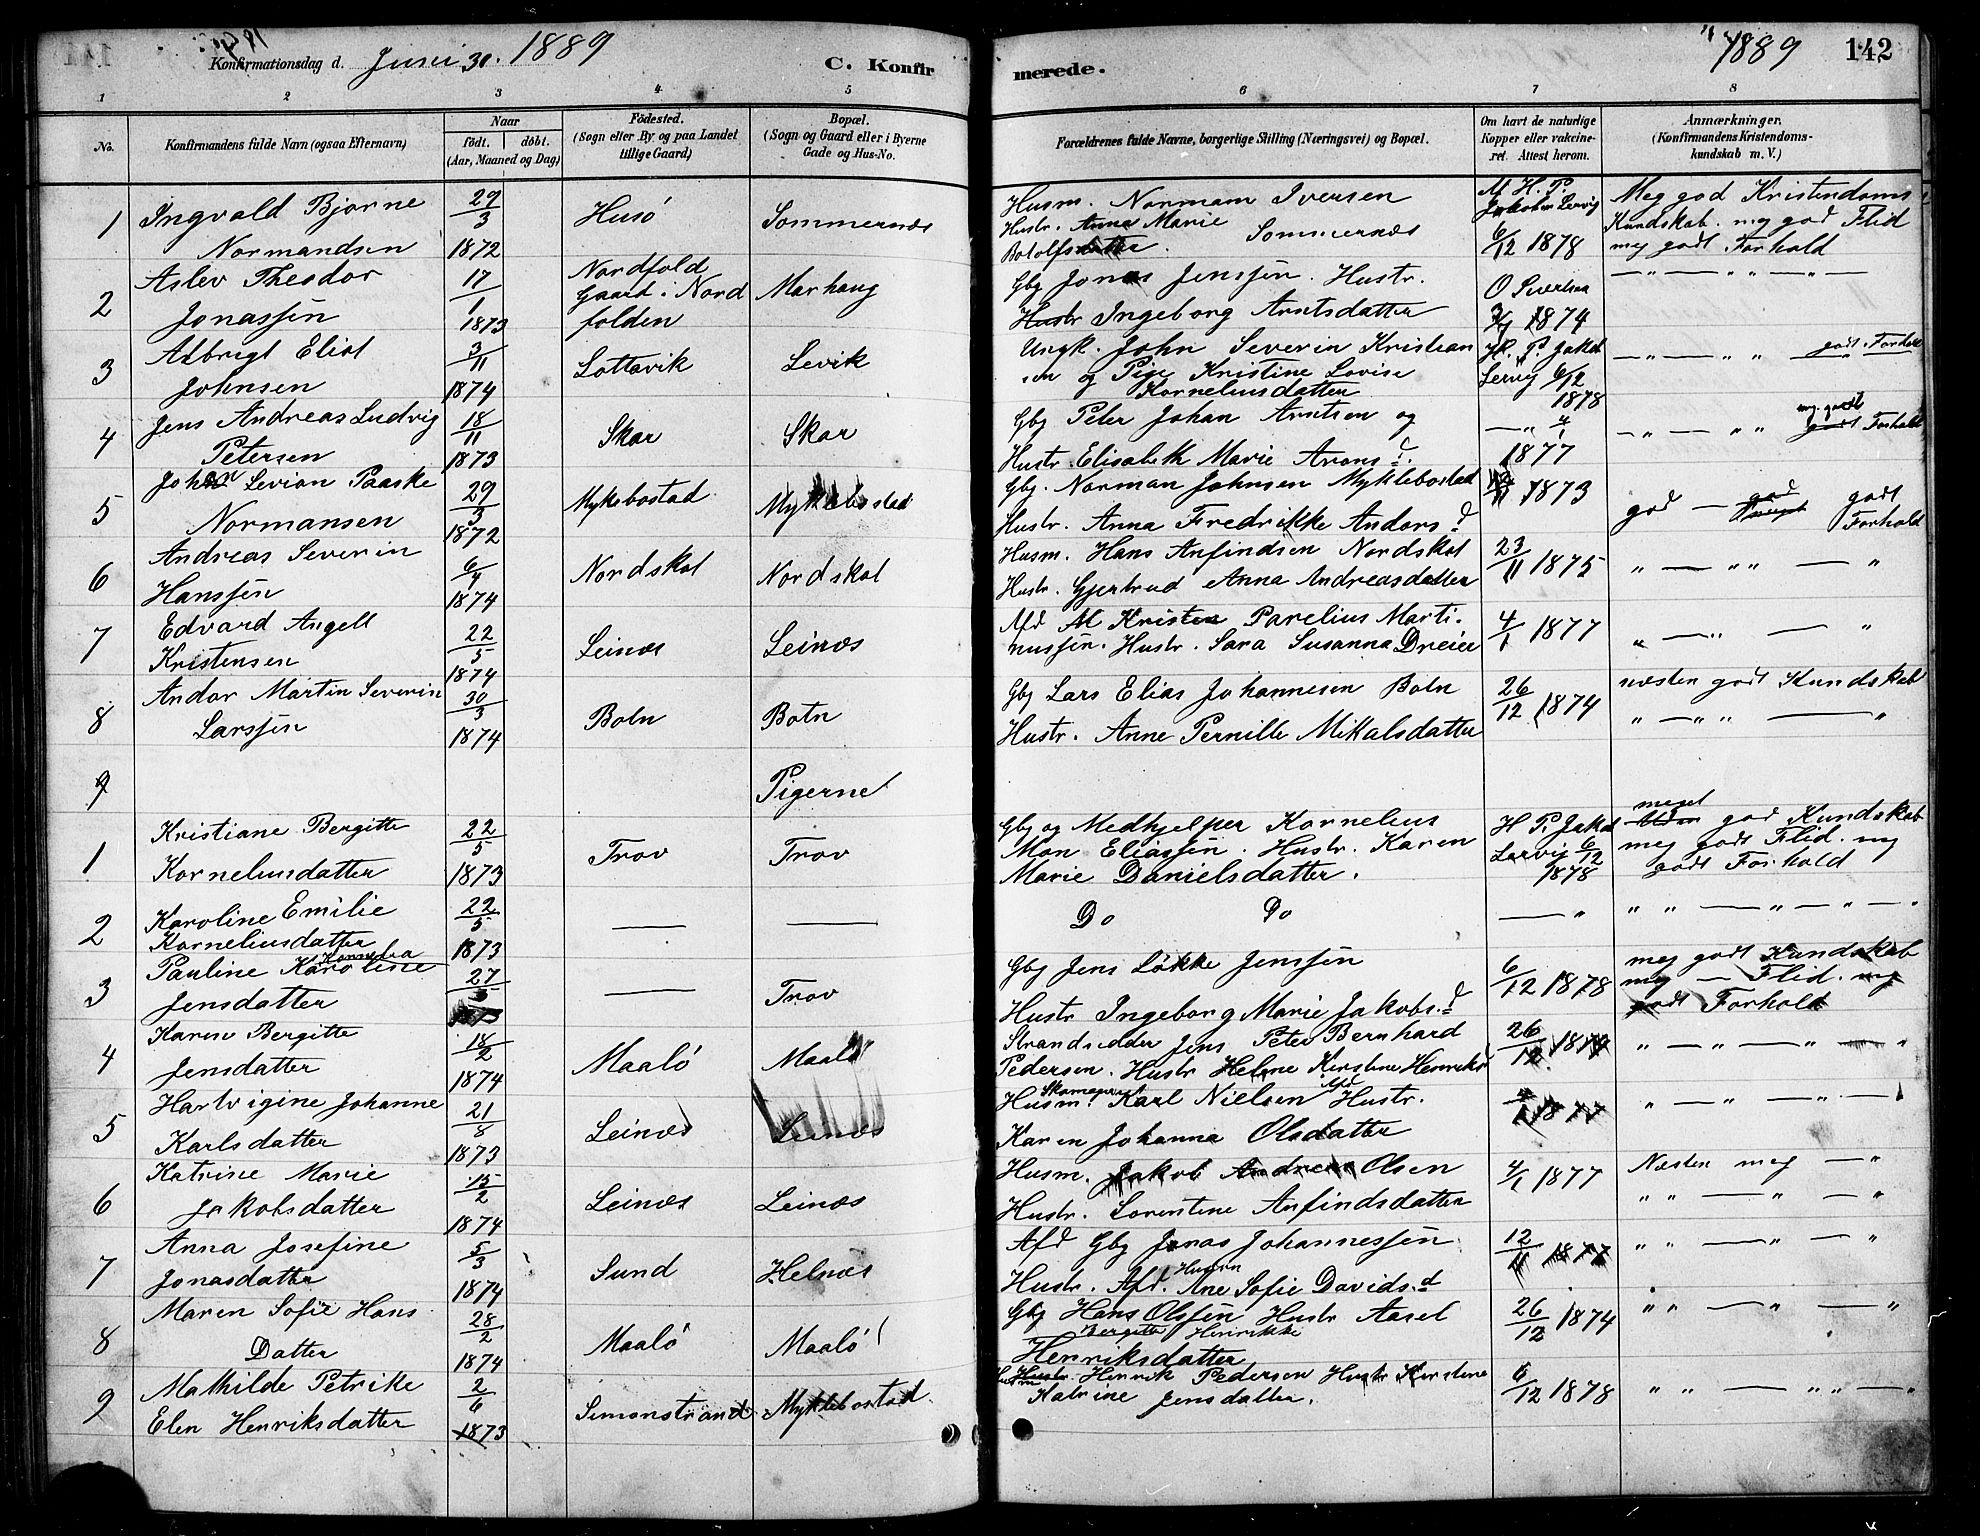 Konfirmationsdag d. Juni 30. 1889
C. Konfirmerede.
1889 142
1 2 3 4 5 6 7 8
No.
Konfirmandens fulde Navn (ogsaa Efternavn)
Naar
födt. döbt.
(Aar, Maaned og Dag)
Födested.
(Sogn eller By og paa Landet
tillige Gaard)
Bopæl.
(Sogn og Gaard eller i Byerne
Gade og Hus-No.
Forældrenes fulde Navne, borgerlige Stilling (Næringsvei) og Bopæl.
Om havt de naturlige
Kopper eller vakcine-
ret. Attest herom.
Anmærkninger.
(Konfirmandens Kristendoms-
kundskab m. V.)
1 Ingvald Bjarne
Normandsen
29/3 1872
Husö
Sommernæs
Husm. Normann Iversen
Hustr. Anna Marie
Botolfsdatter. Sommernæs
H. P.
Jakobsen Lervig
6/12 1878
Meg god Kristendoms
Kundskab. meg god Flid
meg godt Forhold
2 Aslev Theodor
Jonassen
17/1 1873
Nordfold
Gaard i Nord
folden
Marhaug
Gbg Jonas Jenssen. Hustr.
Hustr Ingeborg Arntsdatter
O Sivertsen
1874
— " — " " — " —
3 Albrigt Eliot
Johnsen
3/11 1874
Lottavik
Levik
Ungk. John Severin Kristian
sen og Pige Kristine Lovise
Korneliusdatter
H. P. Jakob
Lervig 6/12
1878
— " — " " godt Forhold
4 Jens Andreas Ludvig
Petersen
18/11 1873
Skar
Skar
Gbg Peter Johan Arntsen og
Hustr. Elisabeth Marie Arons d.
— " 4/1
1877
— " — " " meg godt
godt Forhold
5 Johan Levion Paaske
Normansen
29/3 1872
Myklebostad
Myklebostad
Gbg. Norman Johnsen Myklebostad
Hustr. Anna Fredrikke Andors d
1873
god — god godt
Forhold
6 Andreas Severin
Hanssen
6/4 1874
Nordskot
Nordskot
Husm. Hans Anfindsen Nordskot
Hustr. Gjertrud Anna Andreasdatter
23/11 1875
" — " " — "
7 Edvard Angell
Kristensen
22/5 1874
Leines
Leines
Afd M Kristen Parelius Marti-
nussen. Hustr. Sara Susanna Dreier
4/1 1877
" — " — "
8 Andor Martin Severin
Larssen
30/3 1874
Botn
Botn
Gbg Lars Elias Johannesen Botn
Hustr. Anne Pernille Mikalsdatter
26/12 1874
næsten godt Kundskab
" — " " — "
9
Pigerne
1 Kristiane Bergitte
Korneliusdatter
22/5 1873
Trov
Trov
Gbg og Medhjelper Kornelius
Mon Eliassen. Hustr. Karen
Marie Danielsdatter.
H P. Jakob
Lervig 6/12
1878
meget
god Kundskab
meg godt Flid. meg
godt Forhold
2 Karoline Emilie
Korneliusdatter
22/5 1873
—
—
Do Do
— "
" " — " — " — "
3 Pauline Karoline
Jensdatter
27/3
—
Trov
Gbg Jens Lökke Jenssen
Hustr Ingeborg Marie Jakobs. d
6/12 1878
meg godt Kundskab
meg — Flid. meg
godt Forhold
4 Karen Bergitte
Jensdatter
18/2 1874
Maalö
Maalö
Strandsidder Jens Peter Bernhard
Pedersen. Hustr Helene Kirstine Henriks d
26/12 1874
" — " — " — "
5 Hartvigine Johanne
Karlsdatter
21/8 1873
Leines
Leines
Skomager
Husm. Karl Nielsen Afd Hustr.
Karen Johanna Olsdatter
1877
" — " — " —
6 Katrine Marie
Jakobsdatter
15/2 1874
Leines
Leines
Husm. Jakob Andreas Olsen
Hustr. Lorentine Anfindsdatter
4/1 1877
Næsten meg — "
" " — " — "
7 Anna Josefine
Jonasdatter
5/3 1874
Sund
Helnes
Afd Gbg Jonas Johannessen
Hustr. Afd. Ane Sofie Davids. d
12/11 1877
" " — " — "
8 Maren Sofie Hans
Datter
28/2 1874
Maalö
Maalö
Gbg Hans Olssen Hustr Aasel
Bergitte Henrikke
Henriksdatter
26/12 1874
" " — " — "
9 Mathilde Petrike
Elen Henriksdatter
2/6 1873
Simonstrand
Myklebostad
Henrik Pedersen Hustr Kirstine
Katrine Jensdatter.
6/12 1878
" " — " " — "